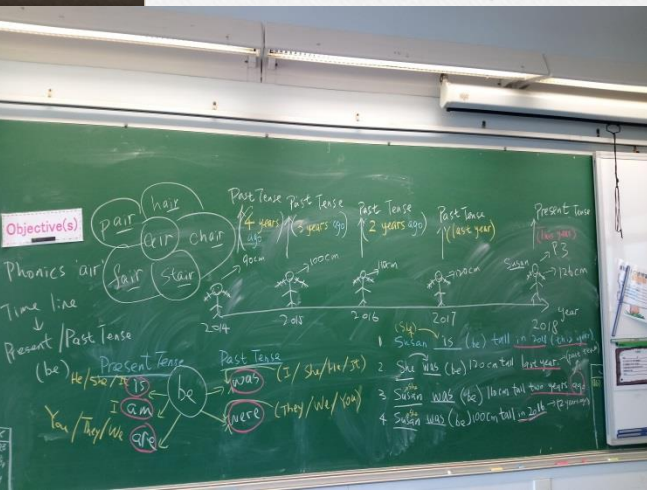 Objective(s)
Phonics 'air'
Time line
↓
Present/Past Tense
(be)
hair
pair
air
chair
fair
stair
Past Tense
(4 years ago)
90cm
2014
Past Tense
(3 years ago)
100cm
2015
Past Tense
(2 years ago)
2016
Past Tense
(last year)
120cm
2017
Present Tense
(this year)
P3
Susan
126cm
2018
year
Present Tense
He/She/It is
I am
You/They/We are
be
Past Tense
was (I/She/He/It)
were (They/We/You)
1 Susan is (be) tall in
2 She was (be) 120cm tall last year.
3 Susan was (be) 110cm tall two years ago
She
4 Susan was (be) 100cm tall in